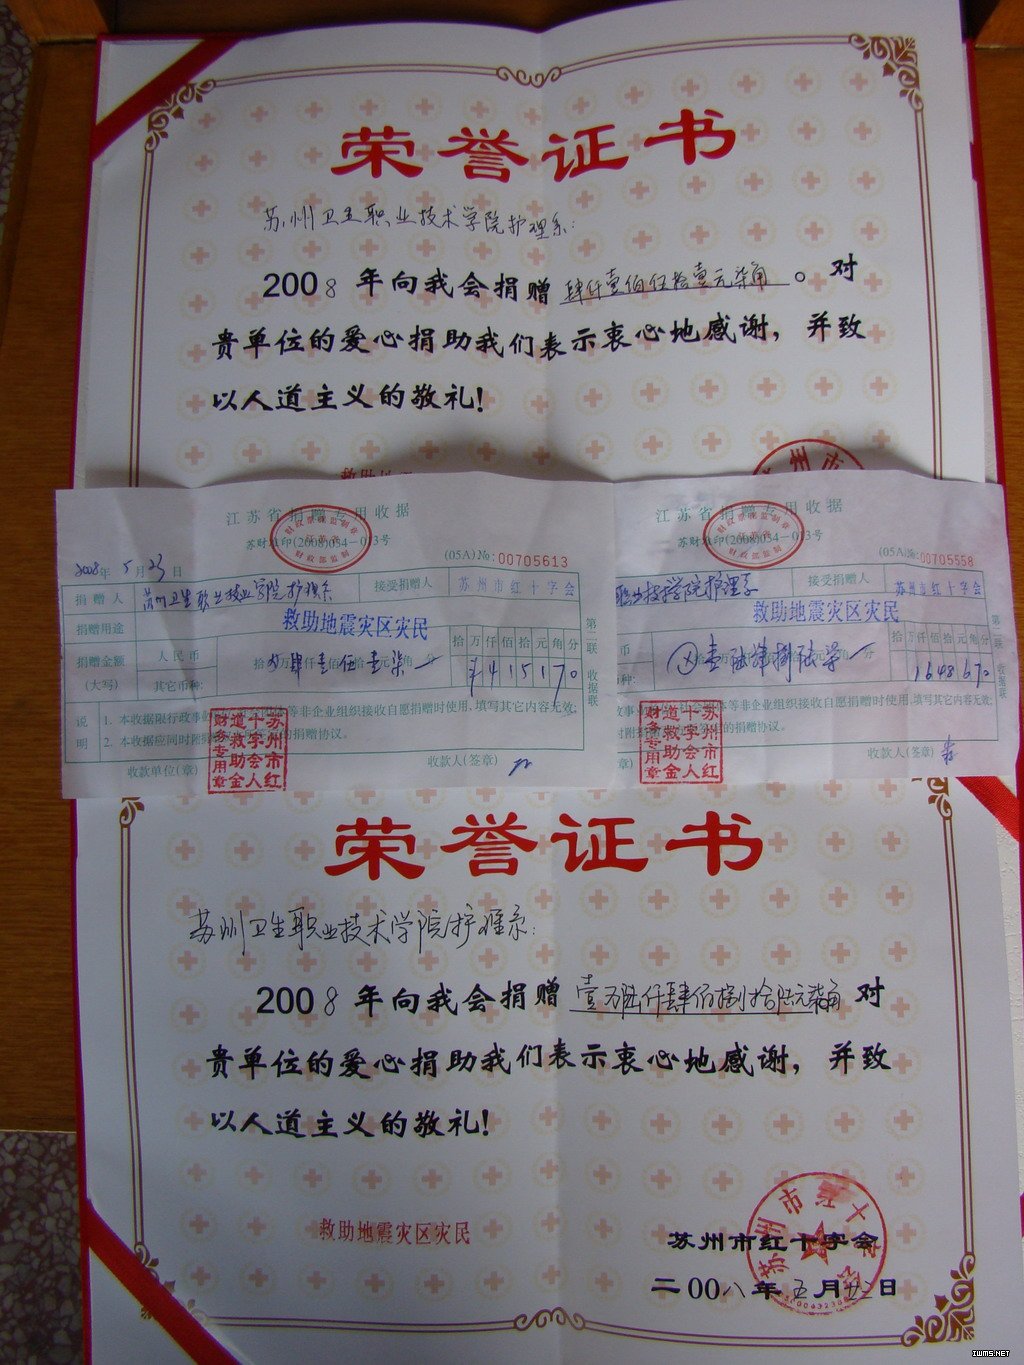 荣誉证书
苏州卫生职业技术学院护理系:
2008年向我会捐赠肆仟壹佰伍拾壹元柒角。对
贵单位的爱心捐助我们表示衷心地感谢，并致
以人道主义的敬礼!
救助地
州市
江苏省捐赠专用收据
苏财准印(2008)054-013号
(05A)№:00705613
2008年5月23日
捐赠人 苏州卫生职业技术学院护理系 接受捐赠人 苏州市红十字会
捐赠用途 救助地震灾区灾民
捐赠金额 人民币 拾万仟佰拾元角分
肆壹伍壹柒 ¥415170
(大写) 其它币种:
说 1. 本收据限行政事 等非企业组织接收自愿捐赠时使用,填写其它内容无效;
明 2. 本收据应同时附 的捐赠协议。
收款单位(章) 收款人(签章)
第二联 收据联
苏州市红十字会人道救助金财务专用章
江苏省捐赠专用收据
苏财准印(2008)054-013号
(05A)№:00705558
学院护理系 接受捐赠人 苏州市红十字会
救助地震灾区灾民
币 拾万仟佰拾元角分
1648670
币种:
政事 等非企业组织接收自愿捐赠时使用,填写其它内容无效;
时附 的捐赠协议。
章) 收款人(签章)
第二联 收据联
苏州市红十字会人道救助金财务专用章
荣誉证书
苏州卫生职业技术学院护理系:
2008年向我会捐赠壹万陆仟肆佰捌拾陆元柒角对
贵单位的爱心捐助我们表示衷心地感谢，并致
以人道主义的敬礼!
救助地震灾区灾民
苏州市红十字会
二00八年五月廿二日
IWMS.NET